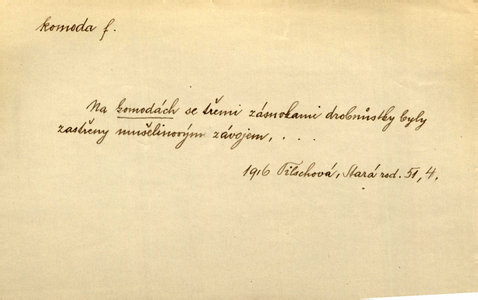 komoda f.
Na komodách se třemi zásuvkami drobnůstky byly
zastřeny mušelinovým závojem, . . . .
1916 Tilschová, Stará rod. 51, 4.